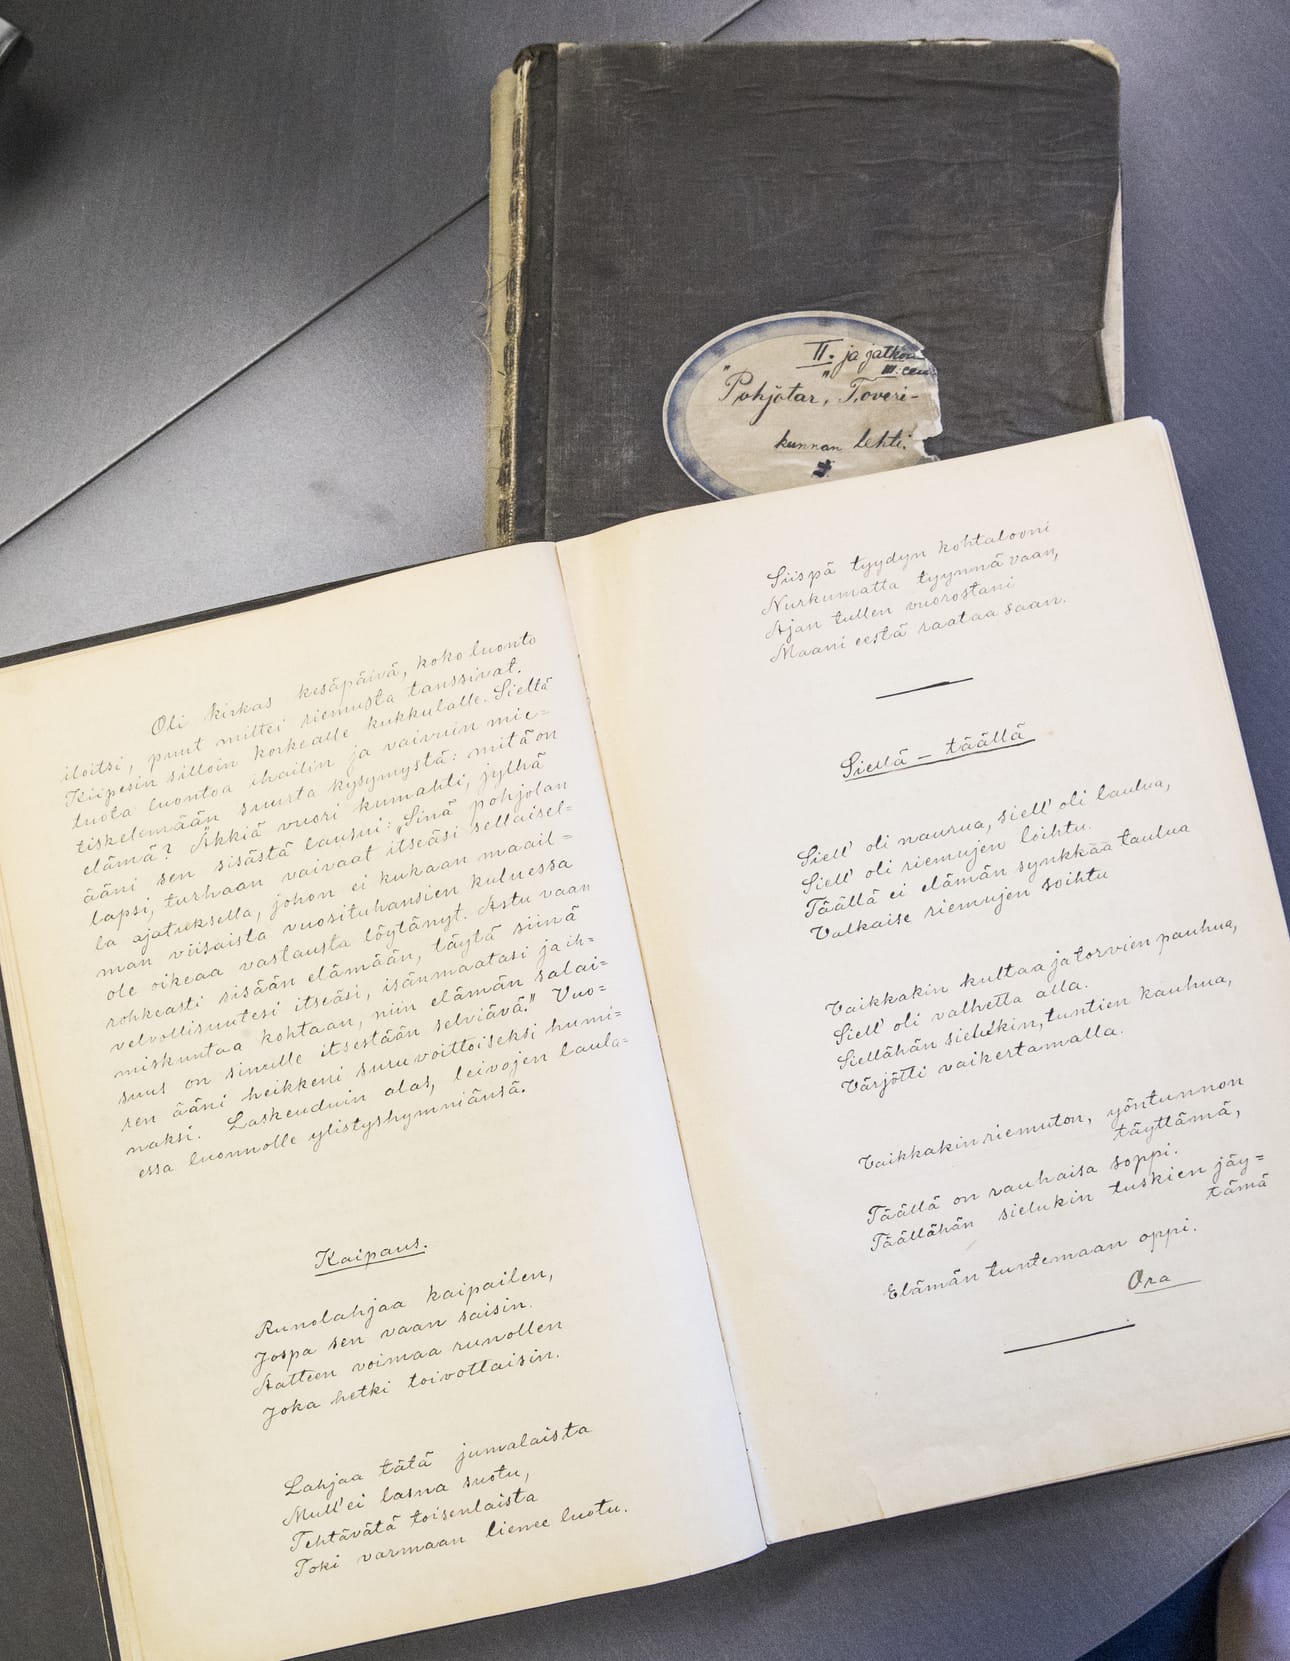 II. ja jatkoa
III:een
"Pohjotar", Toveri-
kunnan lehti.
Oli kirkas kesäpäivä, koko luonto
iloitsi, puut miltei riemusta tanssivat.
Kiipesin silloin korkealle kukkulalle. Siellä
tuota luontoa ihailin ja vaivuin mie=
tiskelemään suurta kysymystä: mitä on
elämä? Äkkiä vuori kumahti, jylhä
ääni sen sisästä lausui: „Sinä pohjolan
lapsi, turhaan vaivaat itseäsi sellaisel=
la ajatuksella, johon ei kukaan maail=
man viisaista vuosituhansien kuluessa
ole oikeaa vastausta löytänyt. Astu vaan
rohkeasti sisään elämään, täytä siinä
velvollisuutesi itseäsi, isänmaatasi ja ih=
miskuntaa kohtaan, niin elämän salai=
suus on sinulle itsestään selviävä." Vuo=
ren ääni heikkeni suruvoittoiseksi humi=
naksi. Laskeuduin alas, leivojen laula=
essa luonnolle ylistyshymniänsä.
Kaipaus.
Runolahjaa kaipailen,
Jospa sen vaan saisin.
Aatteen voimaa runollen
Joka hetki toivottaisin.
Lahjaa tätä jumalaista
Mull' ei lasna suotu,
Tehtävätä toisenlaista
Toki varmaan lienee luotu.
Siispä tyydyn kohtalooni
Nurkumatta tyynnä vaan,
Ajan tullen vuorostani
Maani eestä raataa saan.
Siellä – täällä
Siell' oli naurua, siell' oli laulua,
Siell' oli riemujen loihtu.
Täällä ei elämän synkkää taulua
Valkaise riemujen soihtu
Vaikkakin kultaa ja torvien pauhua,
Siell' oli valhetta alla.
Siellähän sielukin, tuntien kauhua,
Värjötti vaikertamalla.
Vaikkakin riemuton, yöntunnon
täyttämä,
Täällä on rauhaisa soppi.
Täällähän sielukin tuskien jäy=
tämä
Elämän tuntemaan oppi.
Ora